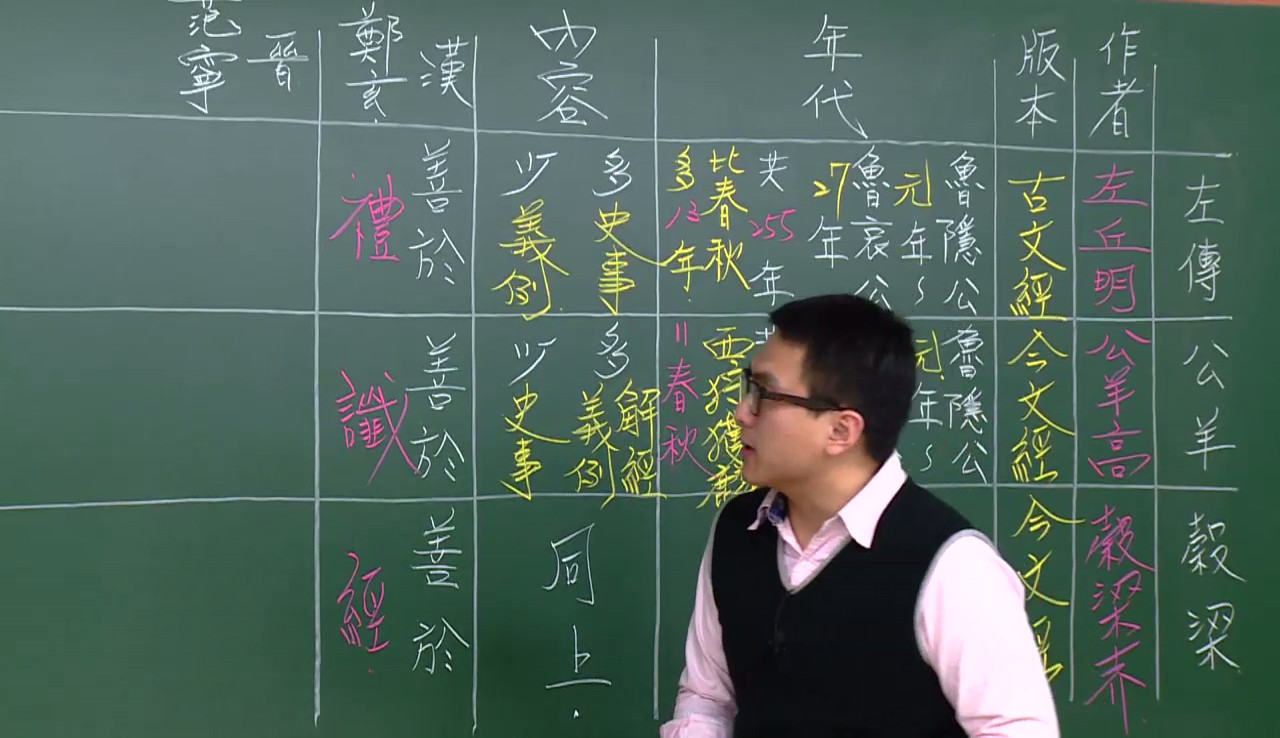 作者
版本
年代
內容
漢
鄭玄
晉
范寧
左傳
左丘明
古文經
魯隱公
元年~
魯哀公
27年
共255年
比春秋
多13年
多史事
少義例
善於
禮
公羊
公羊高
今文經
魯隱公
元年~
西狩獲麟
=春秋
解經
多義例
少史事
善於
讖
穀梁
穀梁赤
今文經
同上
善於
經